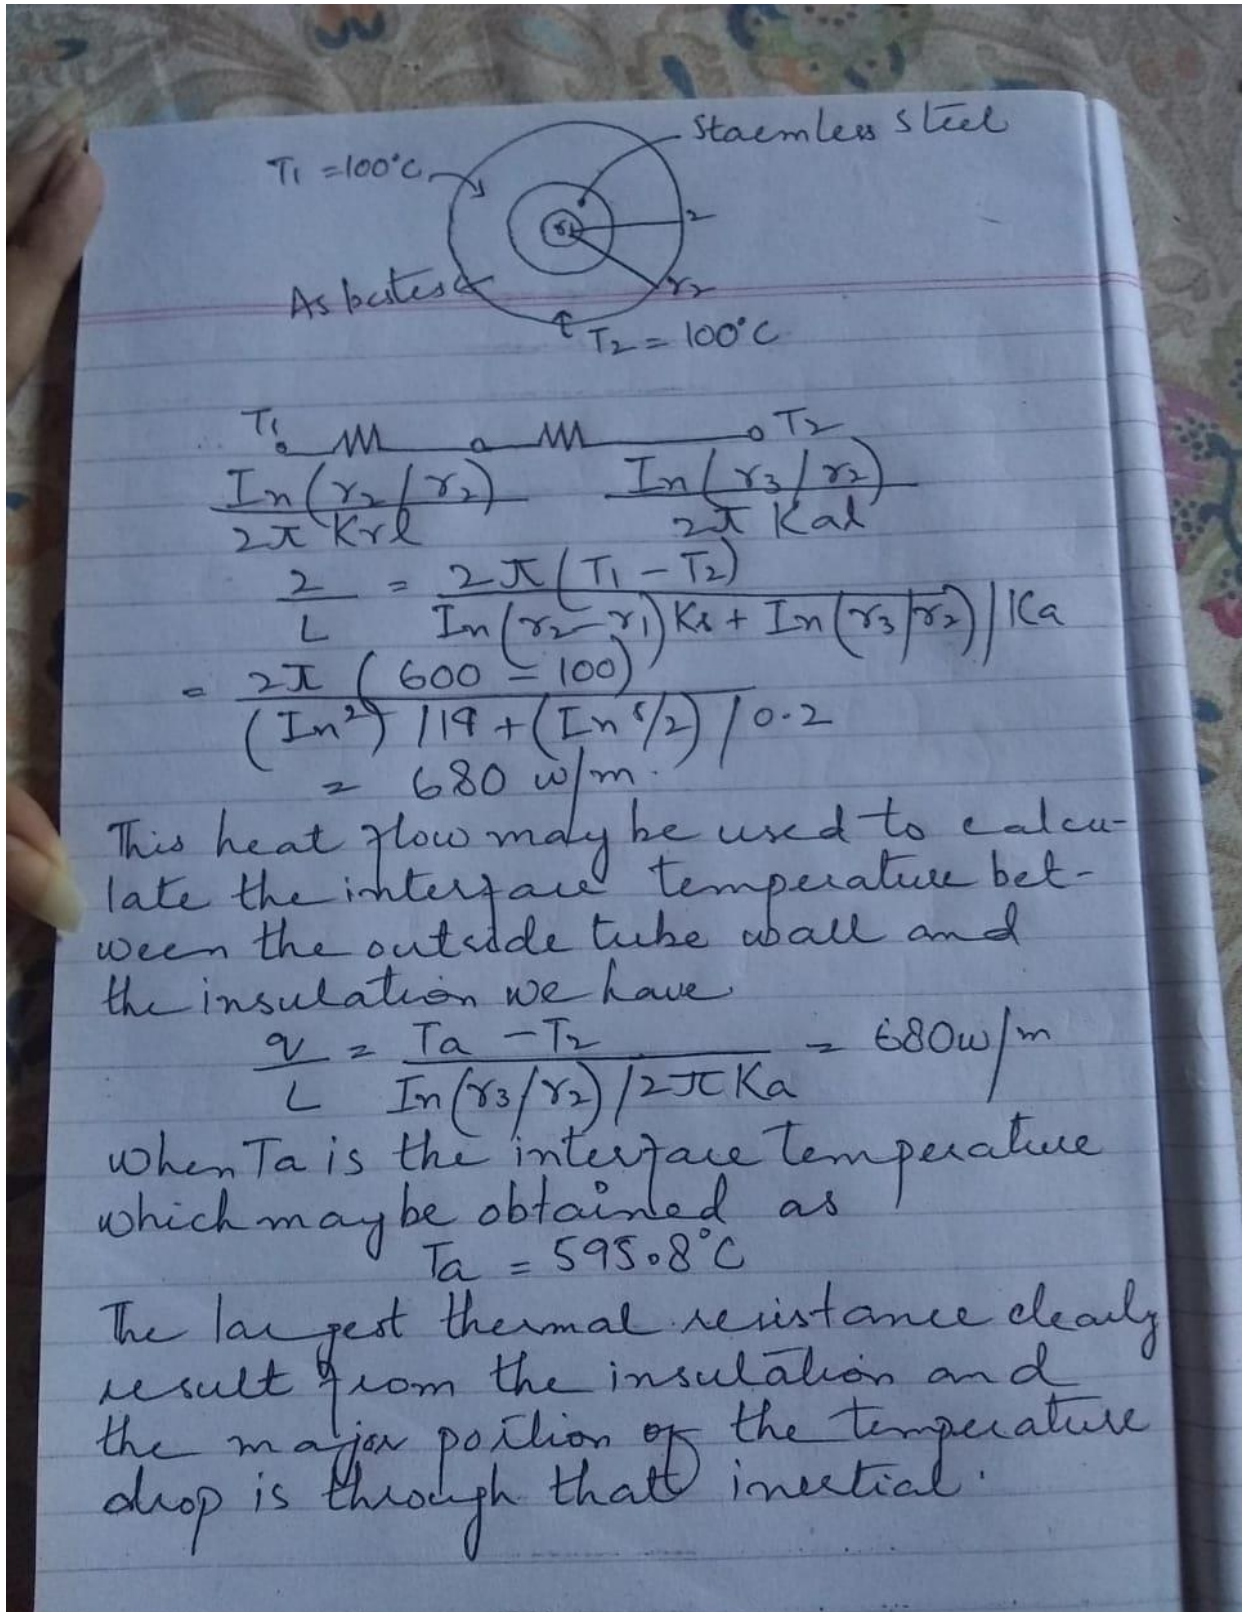 Staemless Steel
T1 = 100°C
r1
2
r2
Asbestes
T2 = 100°C
T1 T2
In(r2/r2) In(r3/r2)
2π Krl 2π Kal
2/L = 2π(T1 - T2)
In(r2-r1)Ks + In(r3/r2)/Ka
= 2π(600 - 100)
(In²)/19 + (In 5/2)/0.2
= 680 w/m.
This heat flow may be used to calcu-
late the interface temperature bet-
ween the outside tube wall and
the insulation we have
q/L = Ta - T2 = 680w/m
In(r3/r2)/2π Ka
when Ta is the interface temperature
which may be obtained as
Ta = 595.8°C
The largest thermal resistance clearly
result from the insulation and
the major portion of the temperature
drop is through that inertial.